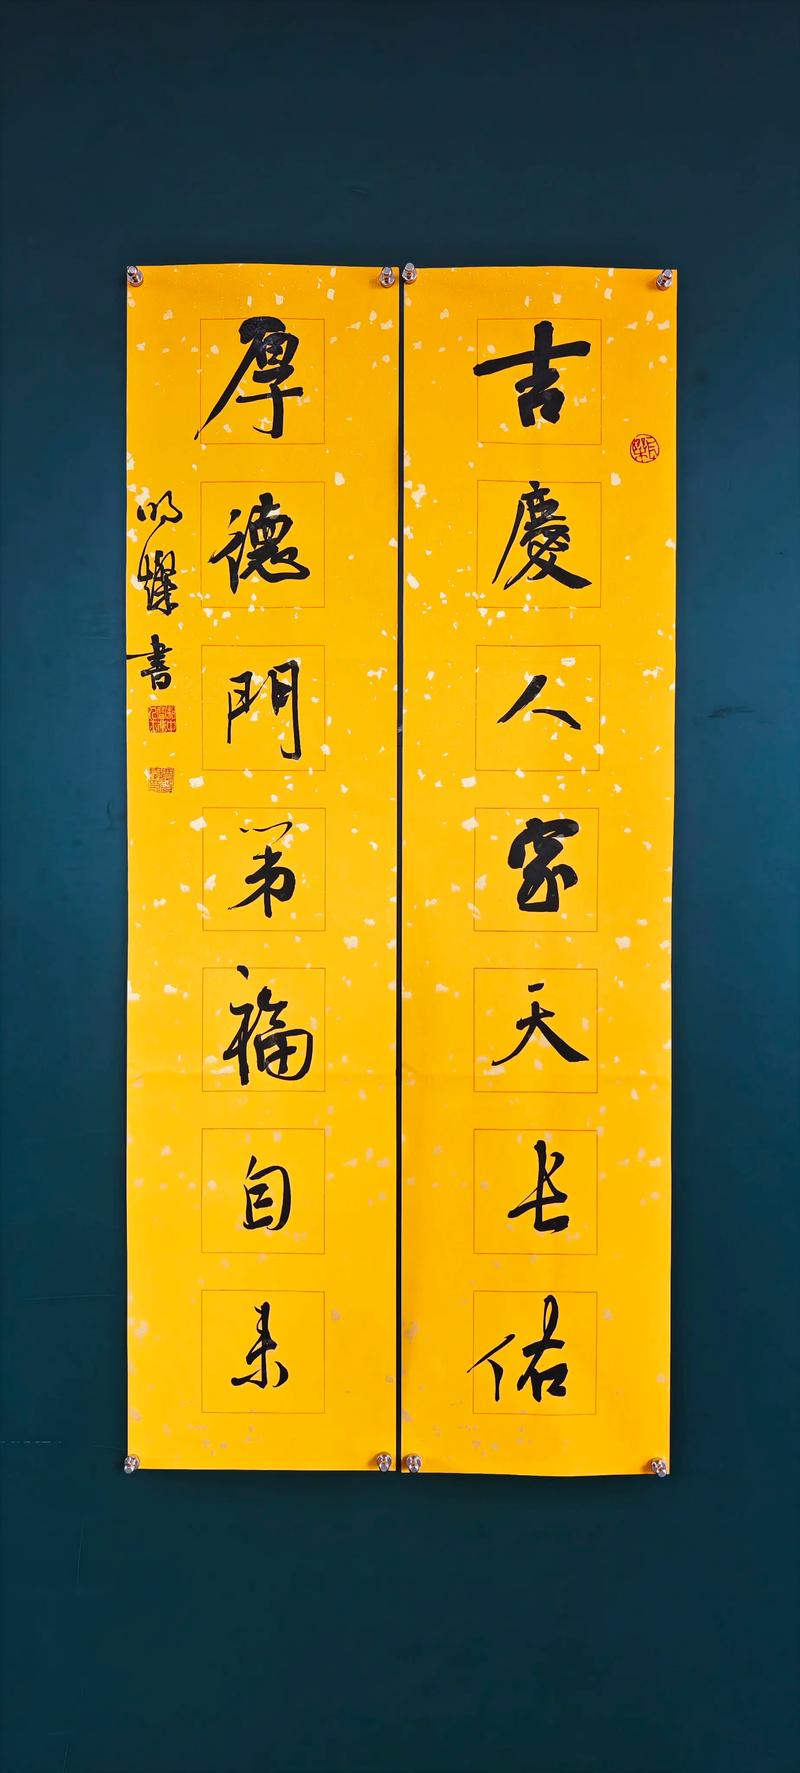 吉慶人家天長佑
厚德門第福自来
明燦書